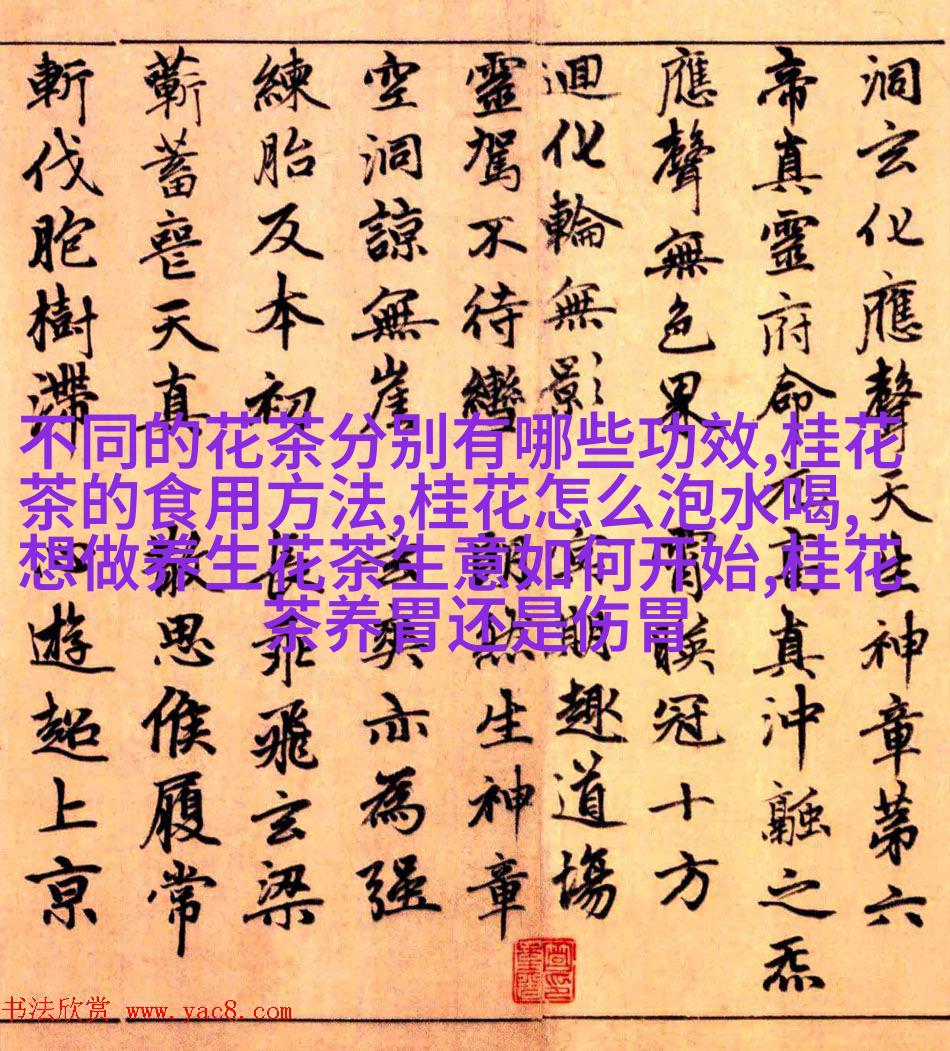 洞玄化應聲天生神章第六
帝真靈府命元真沖融之炁
應聲無色界霄映冠十方
迴化輪無影期趣道場
靈駕不待轡朗然生神章
空洞諒無崖玄爽亦為强
練胎反本初長乖飛玄梁
蘄蓄喪天真散思候履常
斬伐胞樹滯心遊超上京
不同的花茶分别有哪些功效,桂花
茶的食用方法,桂花怎么泡水喝,
想做养生花茶生意如何开始,桂花
茶养胃还是伤胃
书法欣赏 www.yac8.com